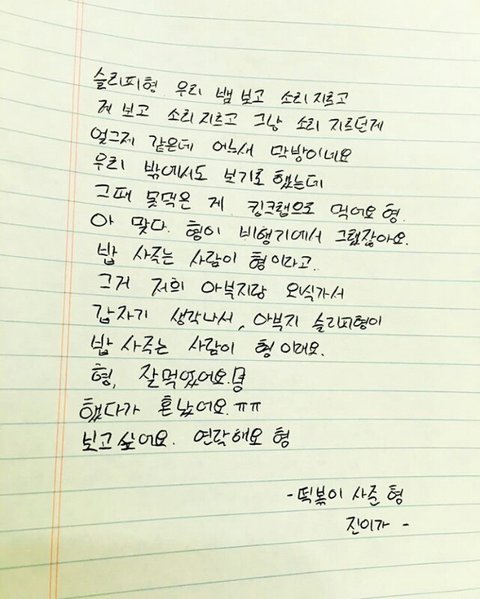 슬리피형 우리 뱀 보고 소리 지르고
게 보고 소리지르고 그냥 소리 지르던게
엊그제 같은데 어느새 막방이네요
우리 밖에서도 보기로 했는데
그때 못먹은 게 킹크랩으로 먹어요 형.
아 맞다. 형이 비행기에서 그랬잖아요.
밥 사주는 사람이 형이라고.
그거 저희 아부지랑 외식가서
갑자기 생각나서, 아부지 슬리피형이
밥 사주는 사람이 형이래요.
형, 잘먹었어요.
했다가 혼났어요.ㅠㅠ
보고 싶어요. 연락해요 형
-떡볶이 사준 형
진이가 -